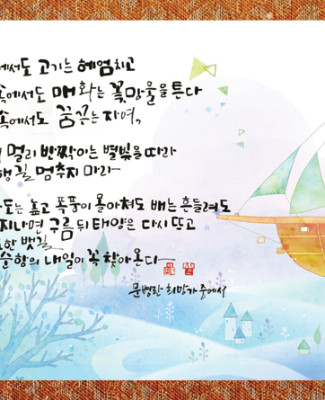 에서도 고기는 헤엄치고
속에서도 매화는 꽃망울을 튼다
속에서도 꿈꾸는 자여,
멀리 반짝이는 별빛을 따라
행길 멈추지 마라
도는 높고 폭풍이 몰아쳐도 배는 흔들려도
지나면 구름 뒤 태양은 다시 뜨고
한 뱃길
순항의 내일이 꼭 찾아온다
문병란 희망가 중에서